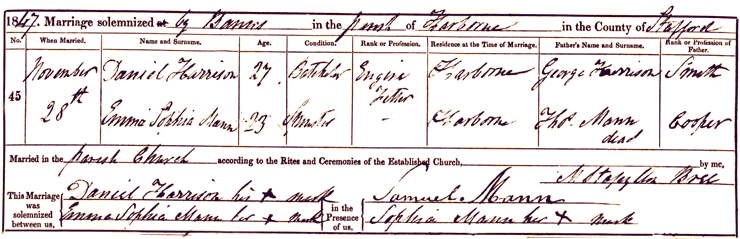 1847. Marriage solemnized at by Banns in the parish of Harborne in the County of Stafford
No. When Married. Name and Surname. Age. Condition. Rank or Profession. Residence at the Time of Marriage. Father's Name and Surname. Rank or Profession of Father.
45 November 28th
Daniel Harrison 27 Batchelor Engine Fitter Harborne George Harrison Smith
Emma Sophia Mann 23 Spinster - Harborne Thos. Mann dead Cooper
Married in the parish Church according to the Rites and Ceremonies of the Established Church, by me,
This Marriage was solemnized between us, Daniel Harrison his x mark
Emma Sophia Mann her x mark
in the Presence of us, Samuel Mann
Sophia Mann her x mark